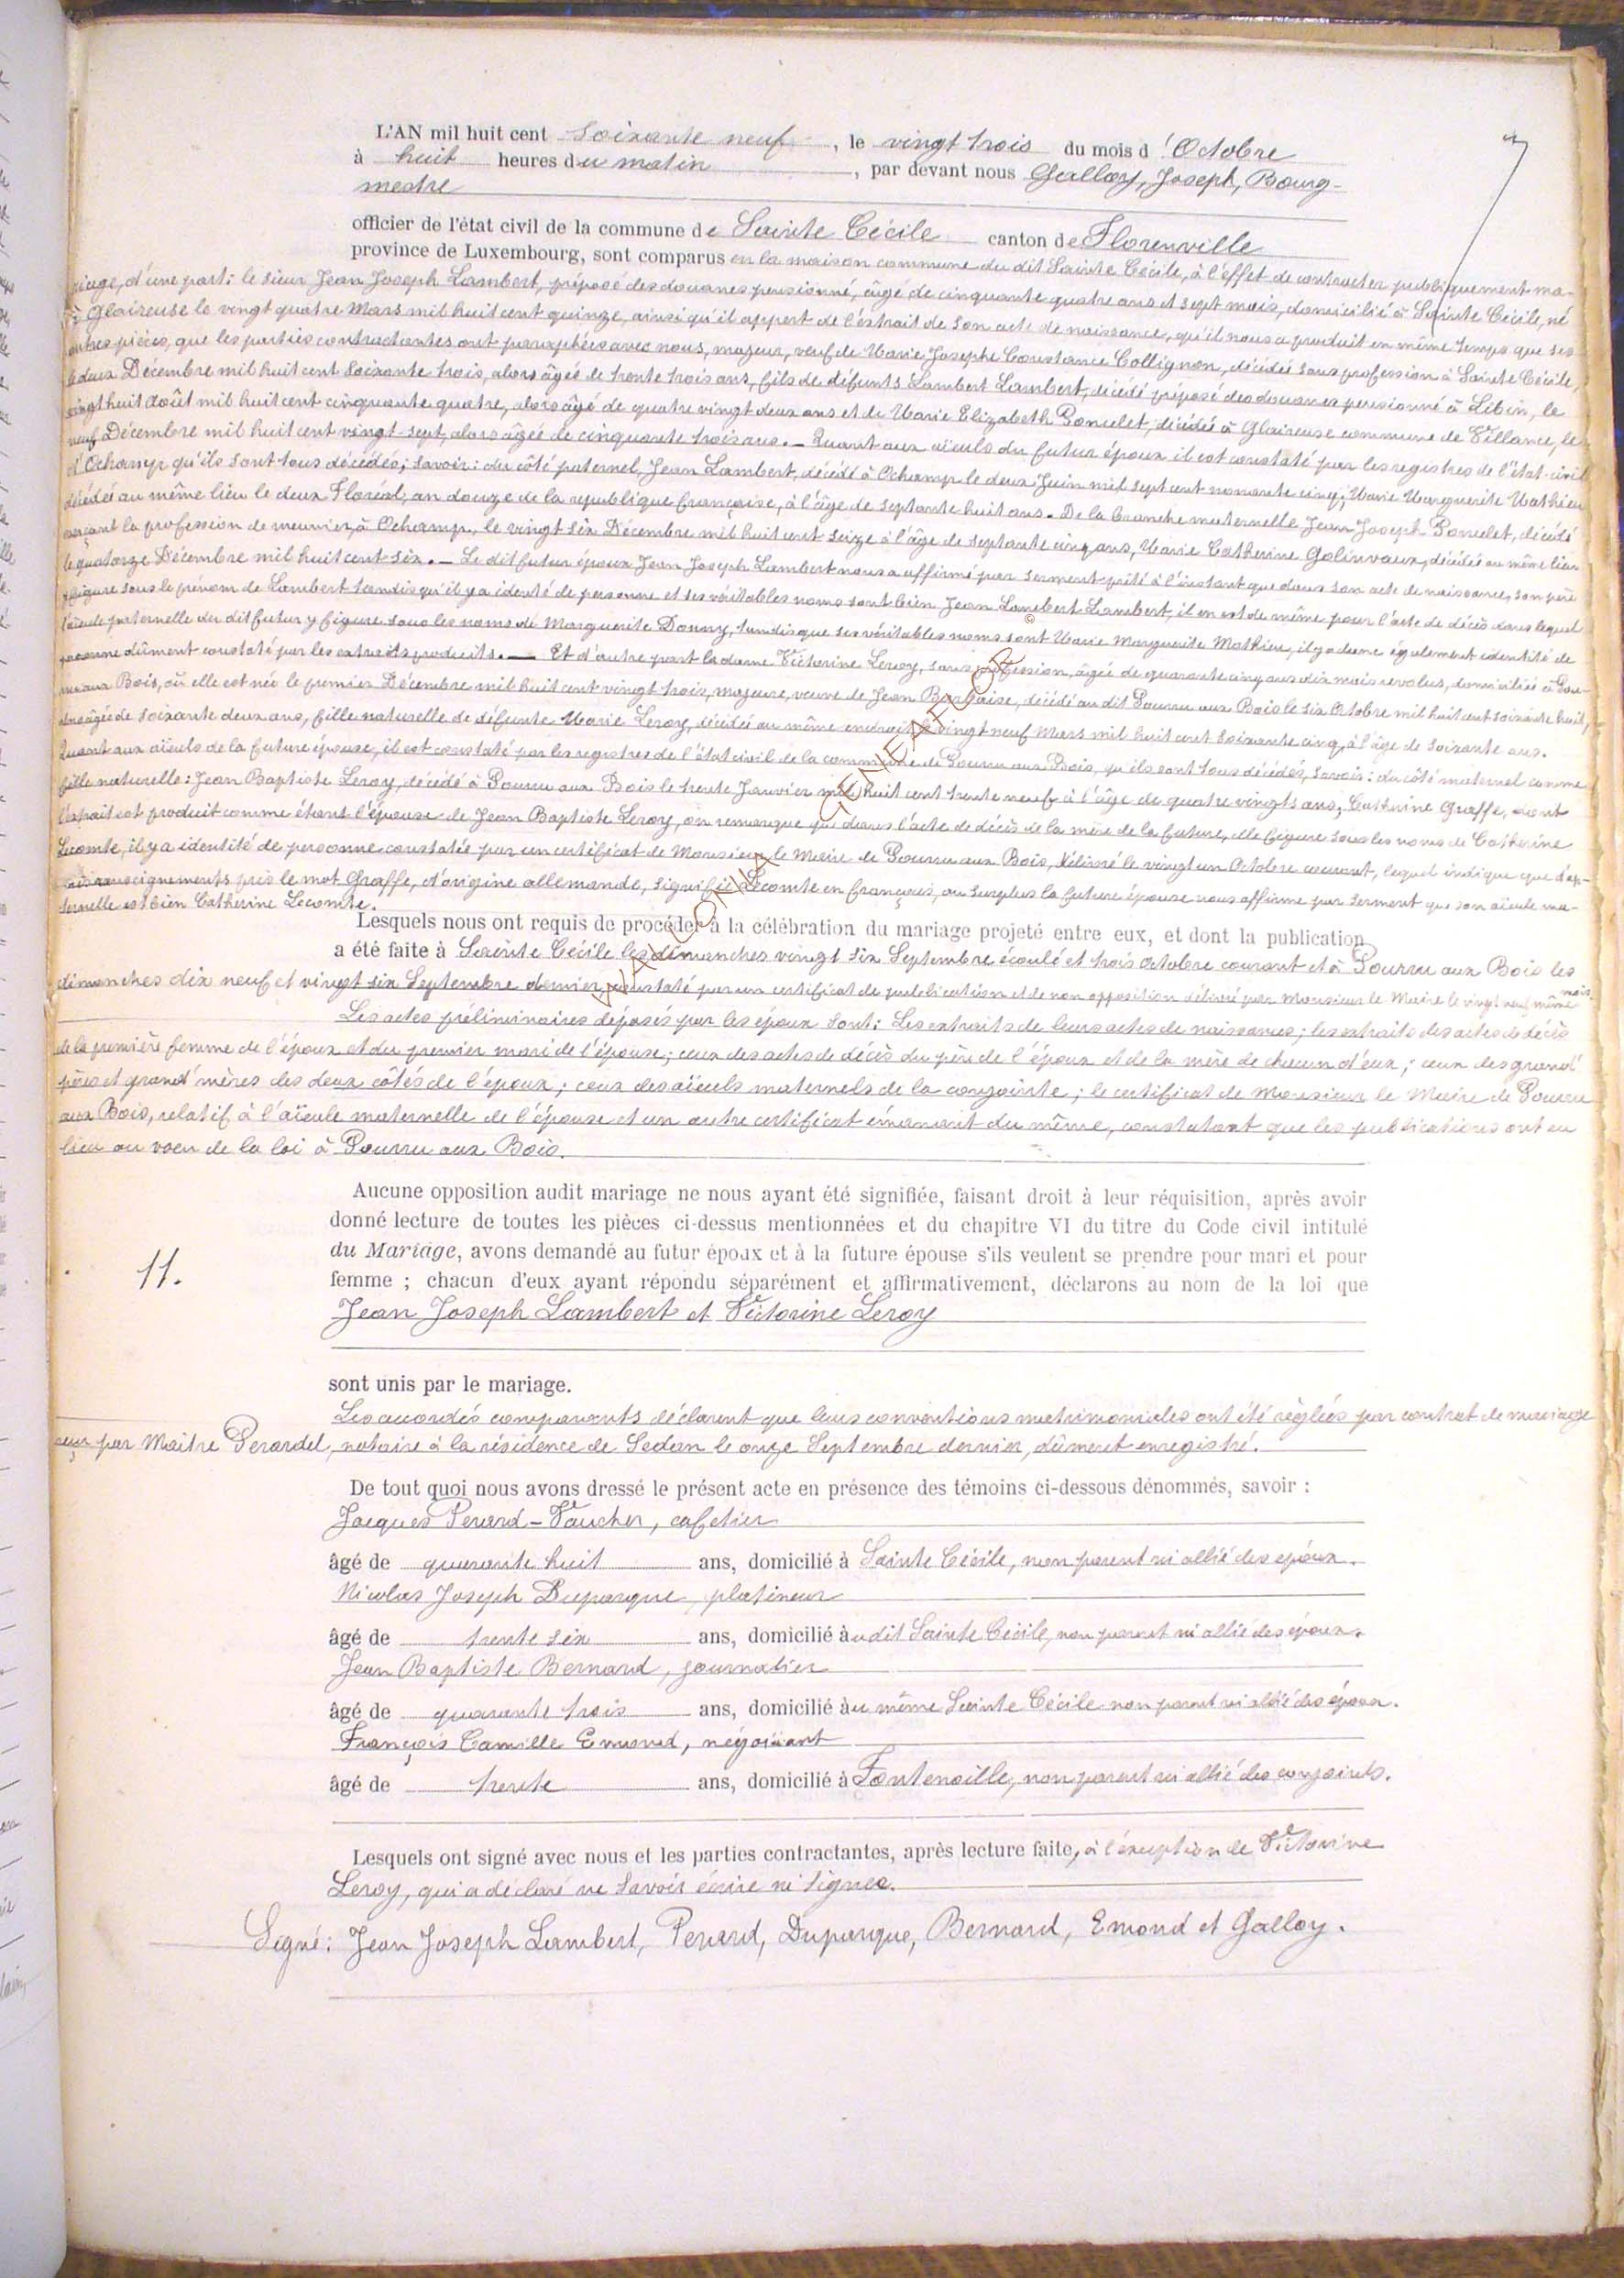 L'AN mil huit cent soixante neuf, le vingt trois du mois d'Octobre
à huit heures du matin, par devant nous Galloy, Joseph, Bourg-
mestre
officier de l'état civil de la commune de Sainte Cécile canton de Florenville
province de Luxembourg, sont comparus en la maison commune du dit Sainte Cécile, à l'effet de contracter publiquement ma-
riage, d'une part: le sieur Jean Joseph Lambert, préposé des douanes pensionné, âgé de cinquante quatre ans et sept mois, domicilié à Sainte Cécile, né
à Glaireuse le vingt quatre Mars mil huit cent quinze, ainsi qu'il appert de l'extrait de son acte de naissance, qu'il nous a produit en même temps que ses
autres pièces, que les parties contractantes ont paraphées avec nous, majeur, veuf de Marie Josephe Constance Collignon, décédée sans profession à Sainte Cécile,
le deux Décembre mil huit cent soixante trois, alors âgée de trente trois ans, fils de défunts Lambert Lambert, décédé préposé des douanes pensionné à Libin, le
vingt huit Août mil huit cent cinquante quatre, alors âgé de quatre vingt deux ans et de Marie Elizabeth Poncelet, décédée à Glaireuse commune de Villance, le
neuf Décembre mil huit cent vingt-sept, alors âgée de cinquante trois ans. — Quant aux aïeuls du futur époux il est constaté par les registres de l'état-civil
d'Ochamp qu'ils sont tous décédés; savoir: du côté paternel, Jean Lambert, décédé à Ochamp le deux Juin mil sept cent nonante cinq; Marie Marguerite Mathieu
décédée au même lieu le deux Floréal, an douze de la republique française, à l'âge de septante huit ans. De la branche maternelle Jean Joseph Poncelet, décédé
exerçant la profession de meunier, à Ochamp, le vingt six Décembre mil huit cent seize à l'âge de septante cinq ans, Marie Catherine Golinvaux, décédée au même lieu
le quatorze Décembre mil huit cent six. — Le dit futur époux Jean Joseph Lambert nous a affirmé par serment prêté à l'instant que dans son acte de naissance, son père
figure sous le prénom de Lambert tandis qu'il y a identé de personne et ses véritables noms sont bien Jean Lambert Lambert, il en est de même pour l'acte de décès dans lequel
l'aïeule paternelle du dit futur y figure sous les noms de Marguerite Donny, tandis que ses véritables noms sont Marie Marguerite Mathieu, il y a donc également identité de
personne dûment constaté par les extraits produits. — Et d'autre part la dame Victorine Leroy, sans profession, âgée de quarante cinq ans dix mois revolus, domiciliée à Pou-
ru aux Bois, où elle est née le premier Décembre mil huit cent vingt trois, majeure, veuve de Jean, décédé au dit Pourru aux Bois le six Octobre mil huit cent soixante huit,
alors âgée de soixante deux ans, fille naturelle de défunte Marie Leroy, décédée au même endroit le vingt neuf Mars mil huit cent soixante cinq, à l'âge de soixante ans.
Quant aux aïeuls de la future épouse, il est constaté par les registres de l'état civil de la commune de Pourru aux Bois, qu'ils sont tous décédés, savoir: du côté maternel comme
fille naturelle: Jean Baptiste Leroy, décédé à Pourru aux Bois le trente Janvier mil huit cent trente neuf à l'âge de quatre vingts ans; Catherine Graffe, dont
l'extrait est produit comme étant l'épouse de Jean Baptiste Leroy, on remarque que dans l'acte de décès de la mère de la future, elle figure sous les noms de Catherine
Lecomte, il y a identité de personne constatée par un certificat de Monsieur le Maire de Pourru aux Bois, délivré le vingt un Octobre courant, lequel indique que d'ap-
rès renseignements pris le mot Graffe, d'origine allemande, signifie Lecomte en français, au surplus la future épouse nous affirme par serment que son aïeule ma-
ternelle est bien Catherine Lecomte.
Lesquels nous ont requis de procéder à la célébration du mariage projeté entre eux, et dont la publication
a été faite à Sainte Cécile les dimanches vingt six Septembre écoulé et trois Octobre courant et à Pourru aux Bois les
dimanches dix neuf et vingt six Septembre dernier, constaté par un certificat de publication et de non opposition délivré par Monsieur le Maire le vingt neuf même mois.
Les actes préliminaires déposés par les époux sont: Les extraits de leurs actes de naissances; les extraits des actes de décès
de la première femme de l'époux et du premier mari de l'épouse; ceux des actes de décès du père de l'époux et de la mère de chacun d'eux; ceux des grand'
pères et grand'mères des deux côtés de l'époux; ceux des aïeuls maternels de la conjointe; le certificat de Monsieur le Maire de Pourru
aux Bois, relatif à l'aïeule maternelle de l'épouse et un autre certificat émanant du même, constatant que les publications ont eu
lieu au voeu de la loi à Pourru aux Bois.
Aucune opposition audit mariage ne nous ayant été signifiée, faisant droit à leur réquisition, après avoir
donné lecture de toutes les pièces ci-dessus mentionnées et du chapitre VI du titre du Code civil intitulé
du Mariage, avons demandé au futur époux et à la future épouse s'ils veulent se prendre pour mari et pour
11.
femme ; chacun d'eux ayant répondu séparément et affirmativement, déclarons au nom de la loi que
Jean Joseph Lambert et Victorine Leroy
sont unis par le mariage.
Les accordés comparants déclarent que leurs conventions matrimoniales ont été réglées par contrat de mariage
reçu par Maître Perardel, notaire à la résidence de Sedan le onze Septembre dernier, dûment enregistré.
De tout quoi nous avons dressé le présent acte en présence des témoins ci-dessous dénommés, savoir :
Jacques Perard-Vaucher, cafetier
âgé de quarante huit ans, domicilié à Sainte Cécile, non parent ni allié des époux.
Nicolas Joseph Duparque, platineur
âgé de trente six ans, domicilié àu dit Sainte Cécile, non parent ni allié des époux.
Jean Baptiste Bernard, journalier
âgé de quarante trois ans, domicilié àu même Sainte Cécile non parent ni allié des époux.
François Camille Emond, négociant
âgé de trente ans, domicilié à Fontenoille, non parent ni allié des conjoints.
Lesquels ont signé avec nous et les parties contractantes, après lecture faite, à l'exception de Victorine
Leroy, qui a déclaré ne savoir écrire ni signer.
Signé: Jean Joseph Lambert, Perard, Duparque, Bernard, Emond et Galloy.